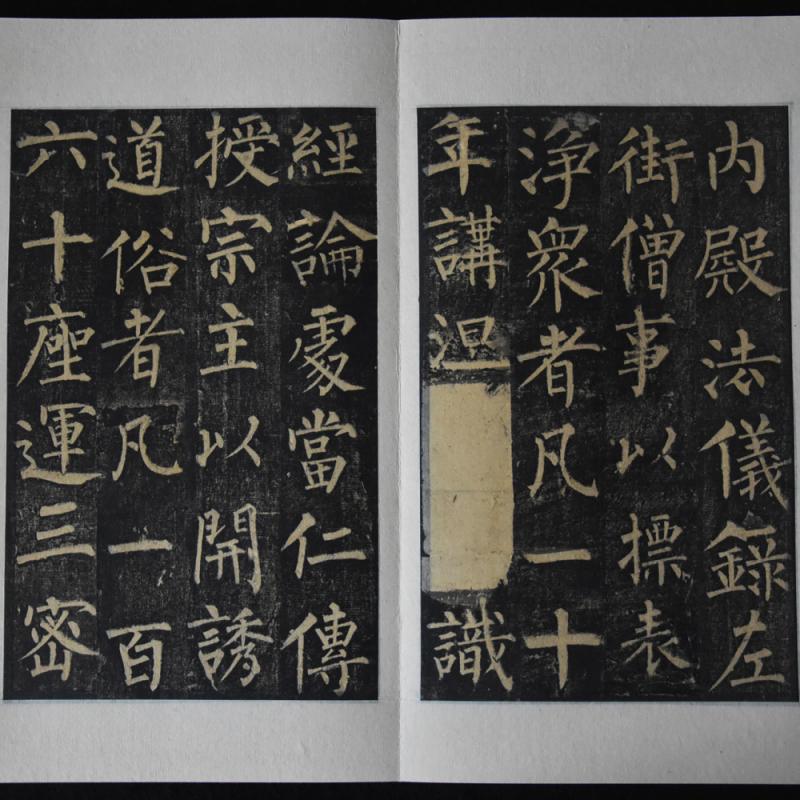 内殿法儀錄左
街僧事以標表
浄衆者凡一十
年講涅識
經論處當仁傳
授宗主以開誘
道俗者凡一百
六十座運三密